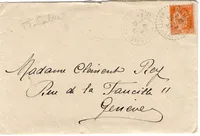 Madame Clément Rey
Rue de la Faucille 11
Genève